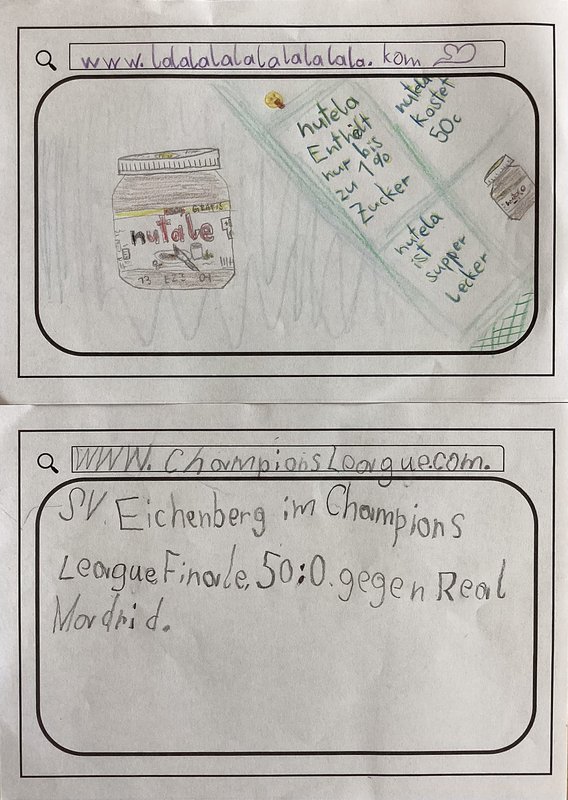 www.lalalalalalalalala.kom
nutela
Enthält
nur bis
zu 1%
Zucker
nutela
Kostet
50c
nutela
ist
supper
Lecker
GRATIS
nutale
WWW.ChampionsLeague.com.
SV. Eichenberg im Champions
League Finale. 50:0. gegen Real
Madrid.